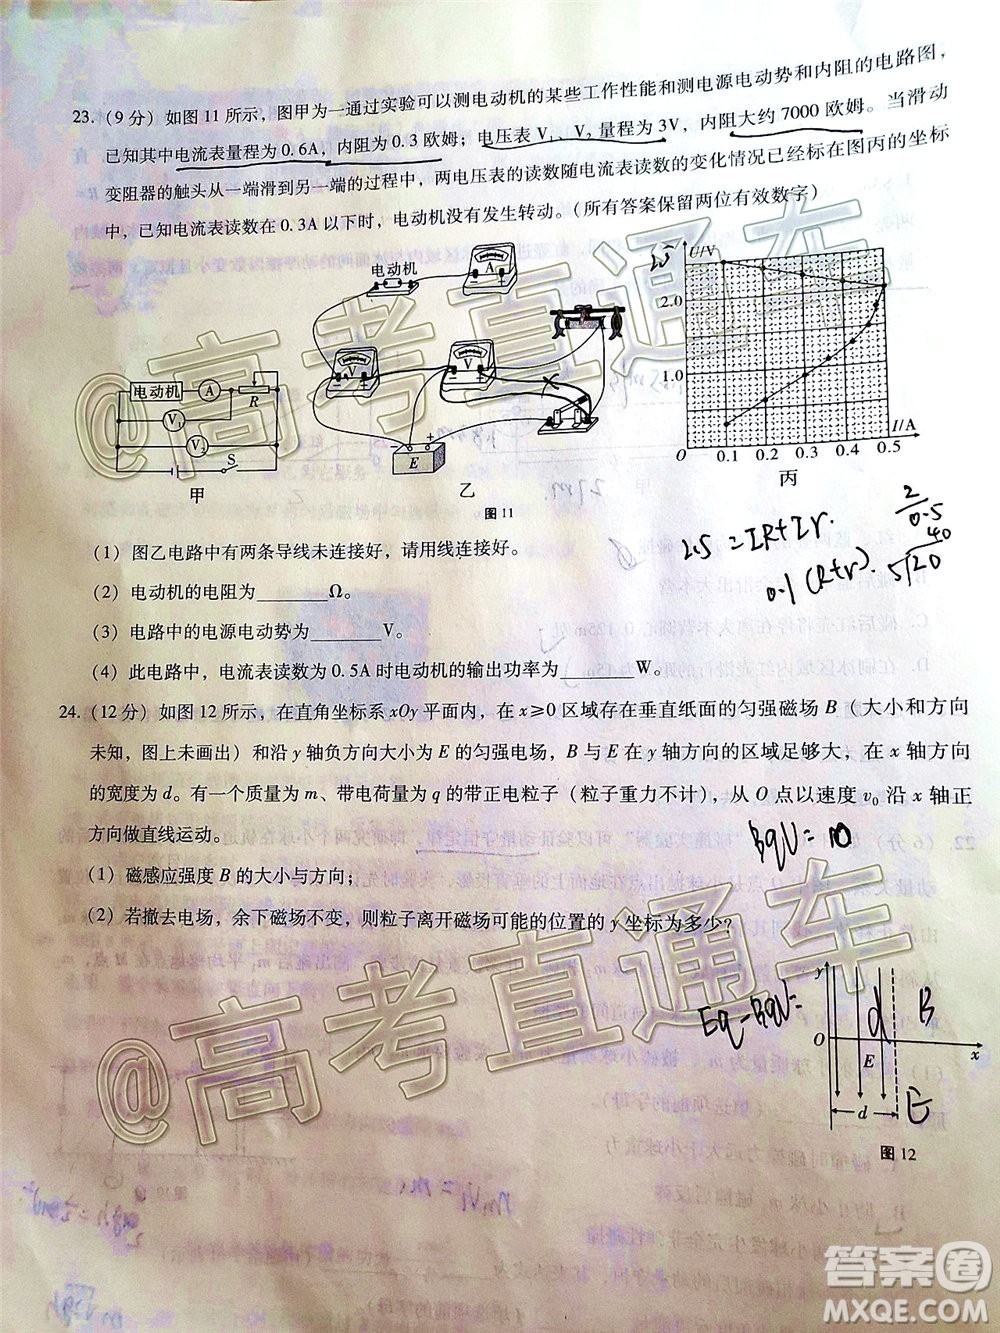 23.(9 分) 如图 11 所示，图甲为一通过实验可以测电动机的某些工作性能和测电源电动势和内阻的电路图，
已知其中电流表量程为 0.6A，内阻为 0.3 欧姆；电压表 V₁、V₂ 量程为 3V，内阻大约 7000 欧姆。当滑动
变阻器的触头从一端滑到另一端的过程中，两电压表的读数随电流表读数的变化情况已经标在图丙的坐标
中，已知电流表读数在 0.3A 以下时，电动机没有发生转动。（所有答案保留两位有效数字）
电动机
A
V
V
E
- +
乙
电动机
A
R
V₁
V₂
S
甲
U/V
2.5
2.0
1.0
0
0.1 0.2 0.3 0.4 0.5
I/A
丙
图 11
2.5 = IR+Ir.
0.1 (R+r).
2
0.5
40
5 20
(1) 图乙电路中有两条导线未连接好，请用线连接好。
(2) 电动机的电阻为______Ω。
(3) 电路中的电源电动势为______V。
(4) 此电路中，电流表读数为 0.5A 时电动机的输出功率为______W。
24.(12 分) 如图 12 所示，在直角坐标系 xOy 平面内，在 x≥0 区域存在垂直纸面的匀强磁场 B（大小和方向
未知，图上未画出）和沿 y 轴负方向大小为 E 的匀强电场，B 与 E 在 y 轴方向的区域足够大，在 x 轴方向
的宽度为 d。有一个质量为 m、带电荷量为 q 的带正电粒子（粒子重力不计），从 O 点以速度 v₀ 沿 x 轴正
方向做直线运动。
(1) 磁感应强度 B 的大小与方向；
(2) 若撤去电场，余下磁场不变，则粒子离开磁场可能的位置的 y 坐标为多少？
BqV =
Eq - BqV =
y
O
x
E
d
d
B
E
图 12
@高考直通车
@高考直通车
答案圈
MXQE.COM